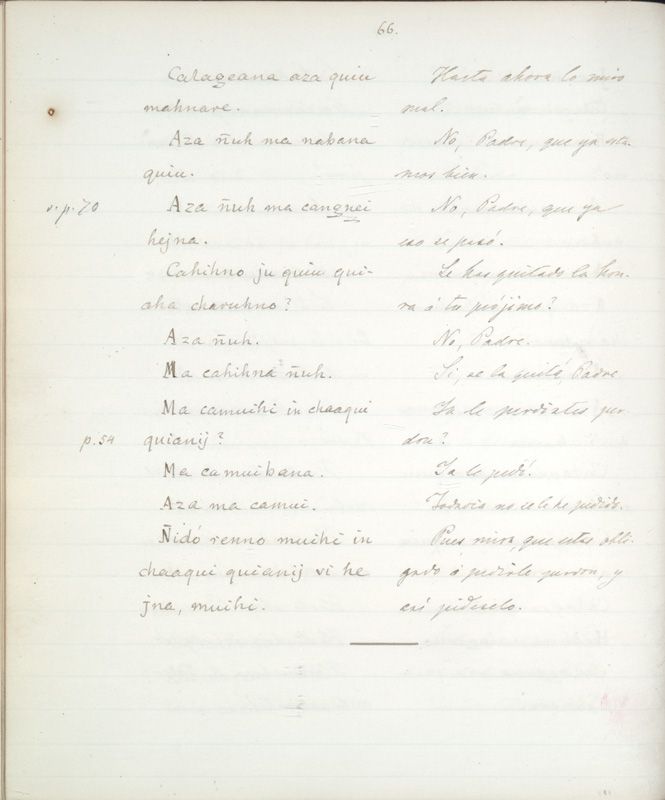 66.
Calageana aza quiu Hasta ahora lo miro
mahnare. mal.
Aza ñuh ma nabana No, Padre, que ya esta-
quiu. mos bien.
v. p. 70 Aza ñuh ma cangnei No, Padre, que ya
hejna. eso se pasó.
Cahihno ju quiu qui- Le has quitado la hon-
aha charuhno? ra á tu prójimo?
Aza ñuh. No, Padre.
Ma cahihna ñuh. Si, se la quité, Padre
Ma camuihi in chaaqui Ya le perdistes per
p. 54 quianij? don?
Ma camuibana. Ya le pedí.
Aza ma camui. Todavia no se le he pedido.
Ñidó renno muihi in Pues mira, que estas obli-
chaaqui quianij vi he gado á pedirle perdon, y
jna, muihi. asi pideselo.